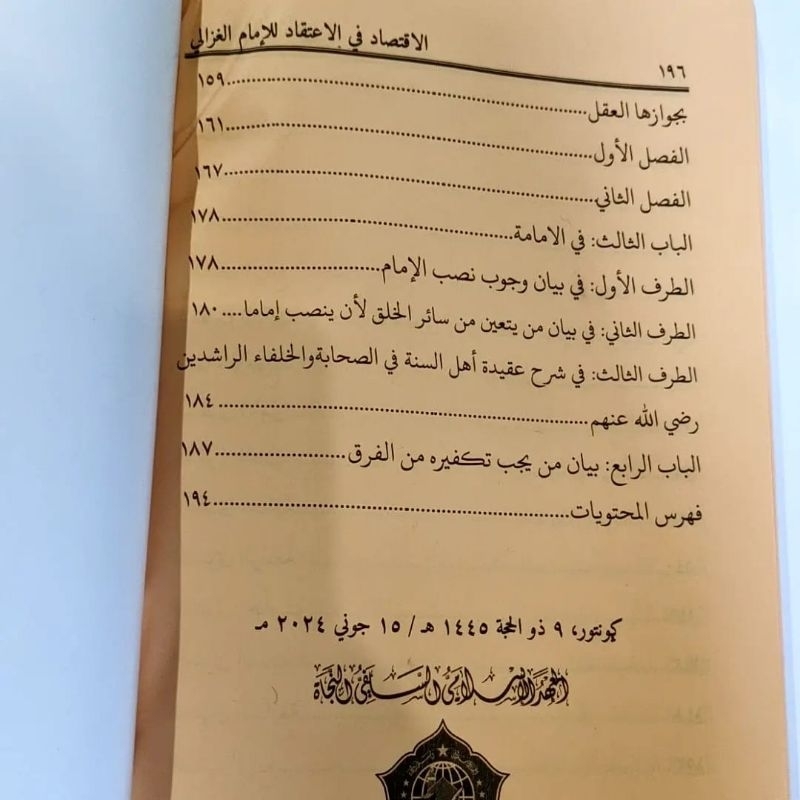 الاقتصاد في الاعتقاد للإمام الغزالي
١٩٦
بجوازها العقل................................................١٥٩
الفصل الأول................................................١٦١
الفصل الثاني................................................١٦٧
الباب الثالث: في الامامة................................................١٧٨
الطرف الأول: في بيان وجوب نصب الإمام................................١٧٨
الطرف الثاني: في بيان من يتعين من سائر الخلق لأن ينصب إماما....١٨٠
الطرف الثالث: في شرح عقيدة أهل السنة في الصحابةوالخلفاء الراشدين
رضي الله عنهم................................................١٨٤
الباب الرابع: بيان من يجب تكفيره من الفرق................................١٨٧
فهرس المحتويات................................................١٩٤
كونتور، ٩ ذو الحجة ١٤٤٥ هـ/ ١٥ جوني ٢٠٢٤ مـ
المعهد الإسلامي السلفي النجاة